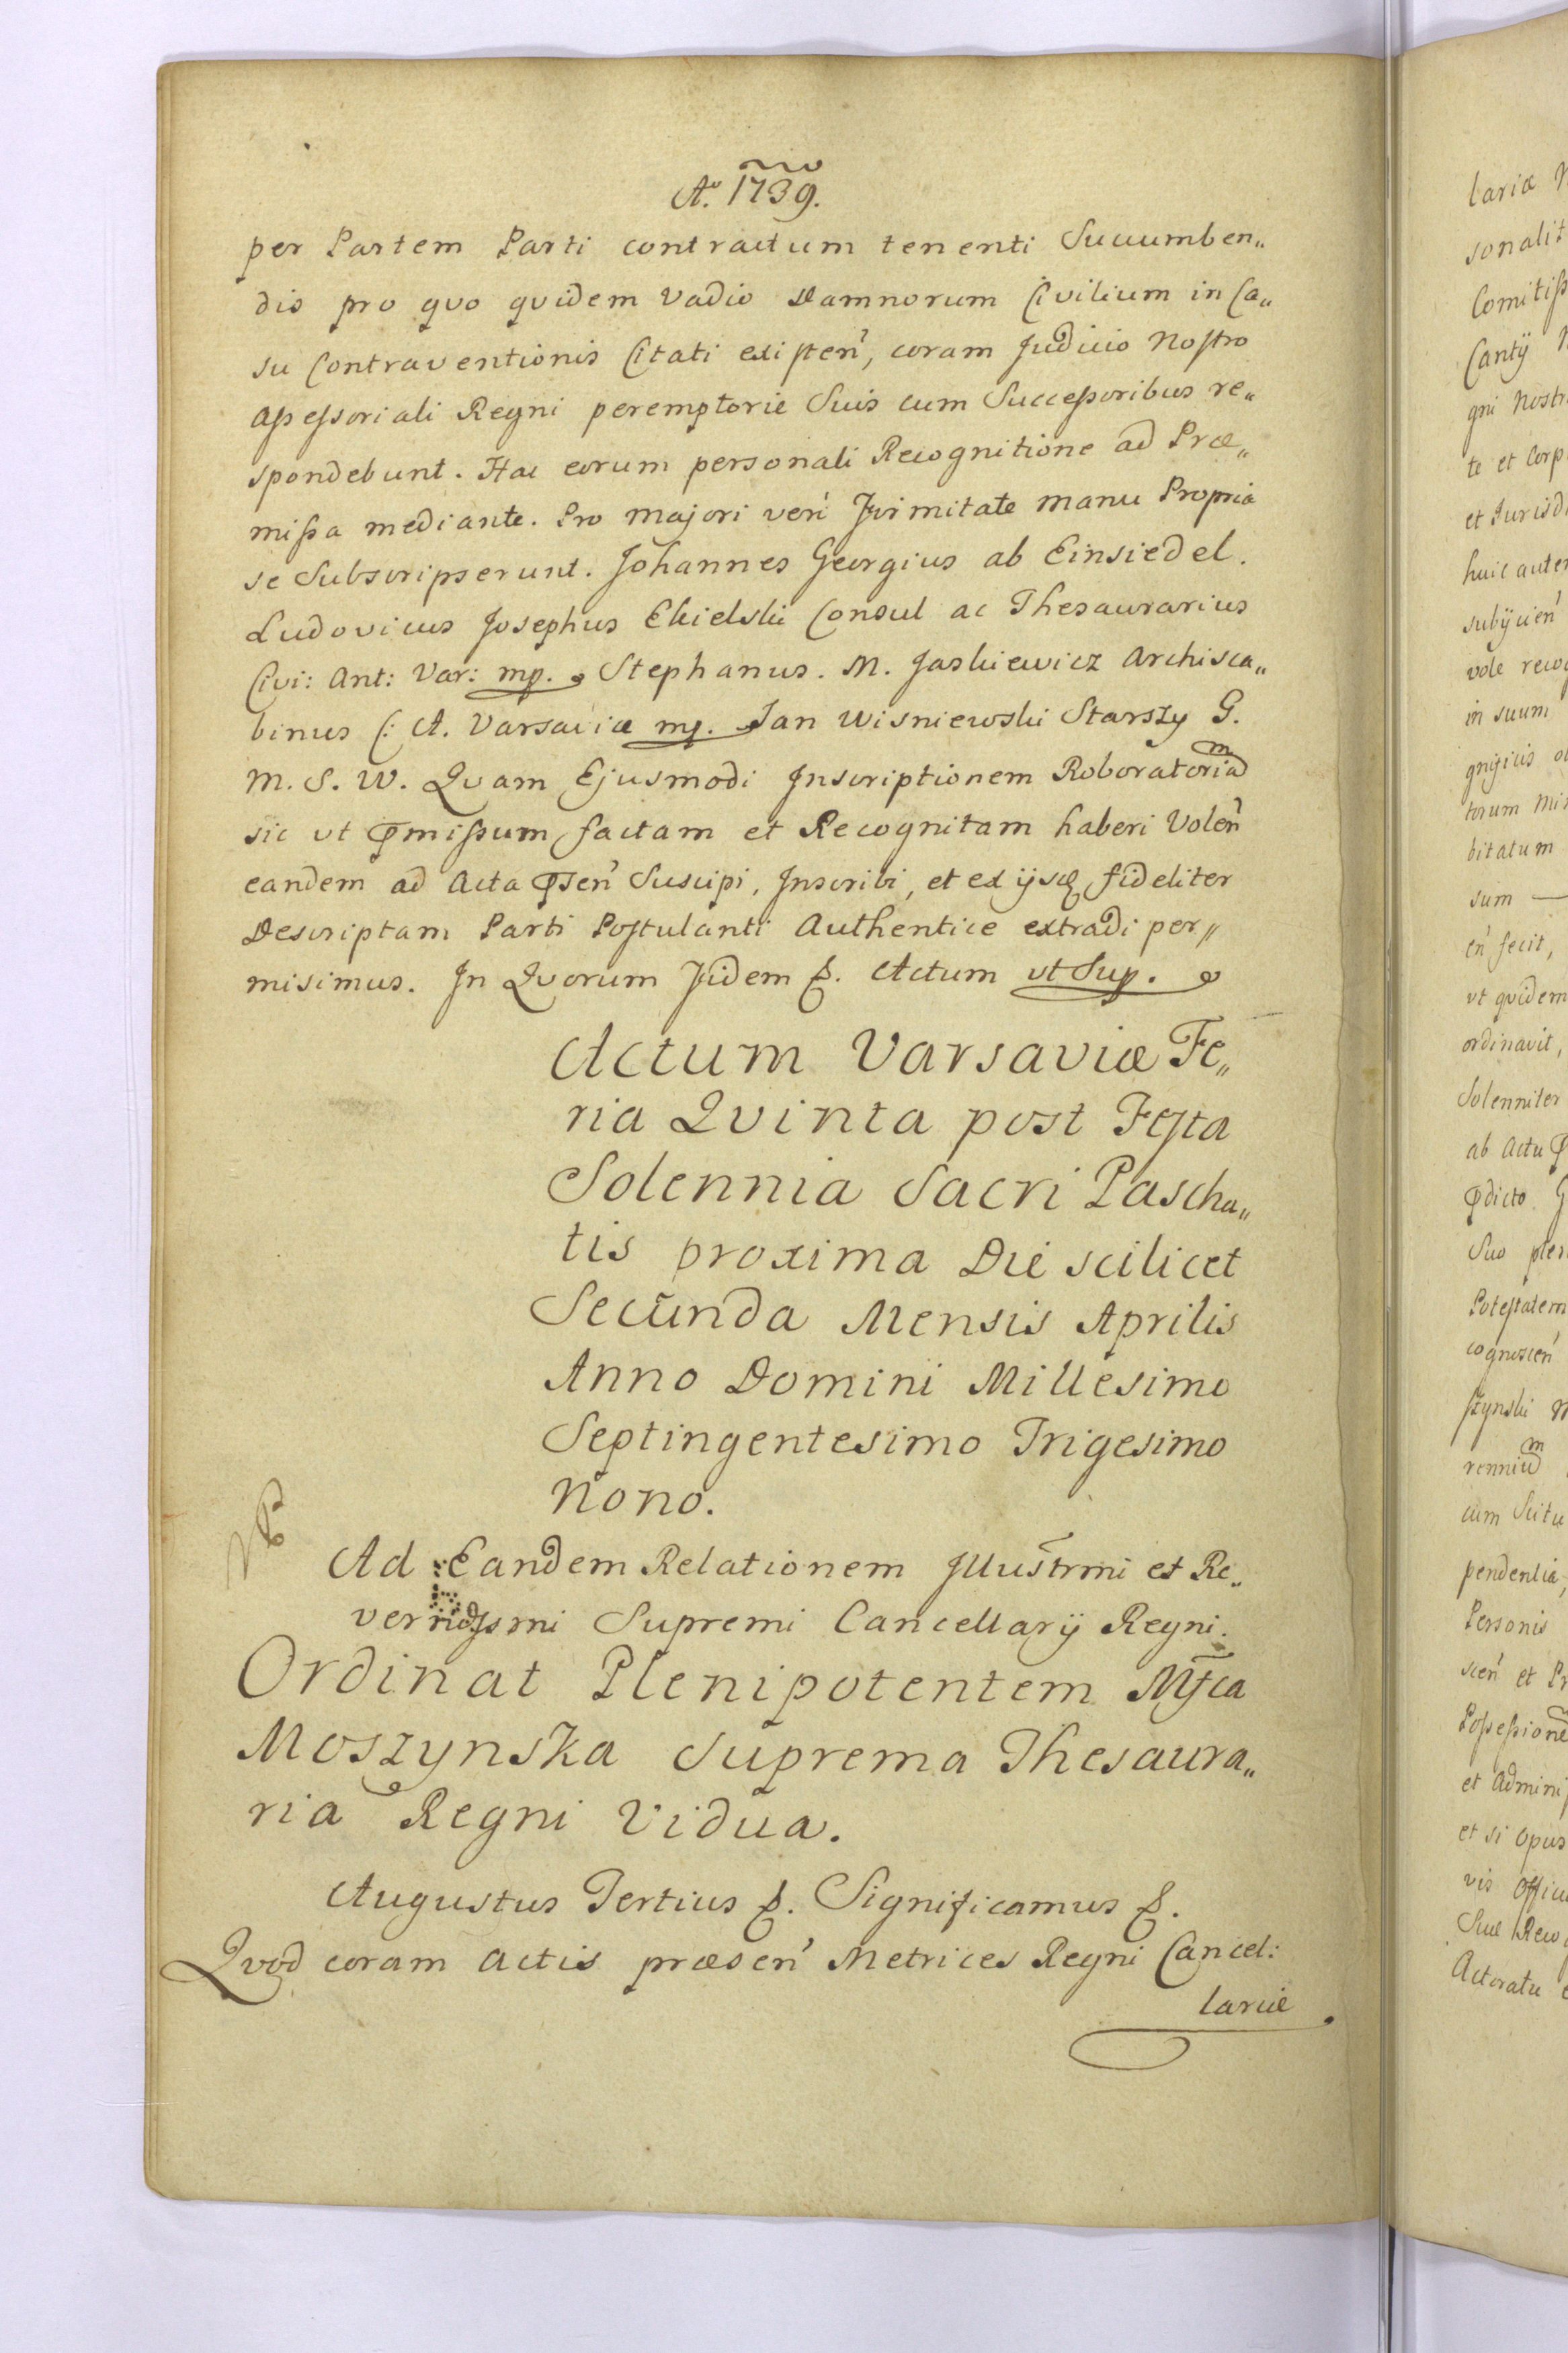 Aº. 1739.
per Partem Parti contractum tenenti Succumben„
dis pro quo quidem Vadio Damnorum Civilium in Ca„
su Contraventionis Citati existen̄, coram Judicio Nostro
Assessoriali Regni peremptorie Suis cum Successoribus re„
spondebunt. Hac eorum personali Recognitione ad Præ„
missa mediante. Pro majori veri Firmitate manu Propria
se Subscripserunt. Johannes Georgius ab Einsiedel.
Ludovicus Josephus Ekielski Consul ac Thesaurarius
Civi: Ant: Var: mp. Stephanus. M. Jaskiewicz Archisca„
binus C: A. Varsaviæ mp. Jan Wisniewski Starszy G.
M. S. W. Quam Ejusmodi Inscriptionem Roboratoriam
sic ut ꝓmissum factam et Recognitam haberi Volen̄
eandem ad Acta ꝓsen̄ Suscipi, Inscribi, et ex ijsq fideliter
Descriptam Parti Postulanti Authentice extradi per„
misimus. In Quorum Fidem &. Actum ut Sup.
Actum Varsaviæ Fe„
ria Quinta post Festa
Solennia Sacri Pascha„
tis proxima Die scilicet
Secunda Mensis Aprilis
Anno Domini Millesimo
Septingentesimo Trigesimo
Nono.
Ad Eandem Relationem Illustrmi et Re„
verndssmi Supremi Cancellarij Regni.
Ordinat Plenipotentem Mfca
Moszynska Suprema Thesaura„
ria Regni Vidua.
Augustus Tertius &. Significamus &.
Quod coram Actis præsen̄ Metrices Regni Cancel:
lariæ
lariæ
sonalit
Comitiss
Cantij
gni Nostr
te et Corp
et Jurisd
huic aute
subijcien̄
vole reco
in suum
torum
bitatum
sum —
en̄ fecit,
ut quidem
ordinavit,
Solenniter
ab Actu
ꝓdicto. G
Suo plen
Potestatem
cognoscen̄
szynski
renniu
cum Scitu
pendentia,
Personis
scen̄ et Pr
Possessione
et Admini
et si opus
vis Offici
Suæ Reco
Actoratu